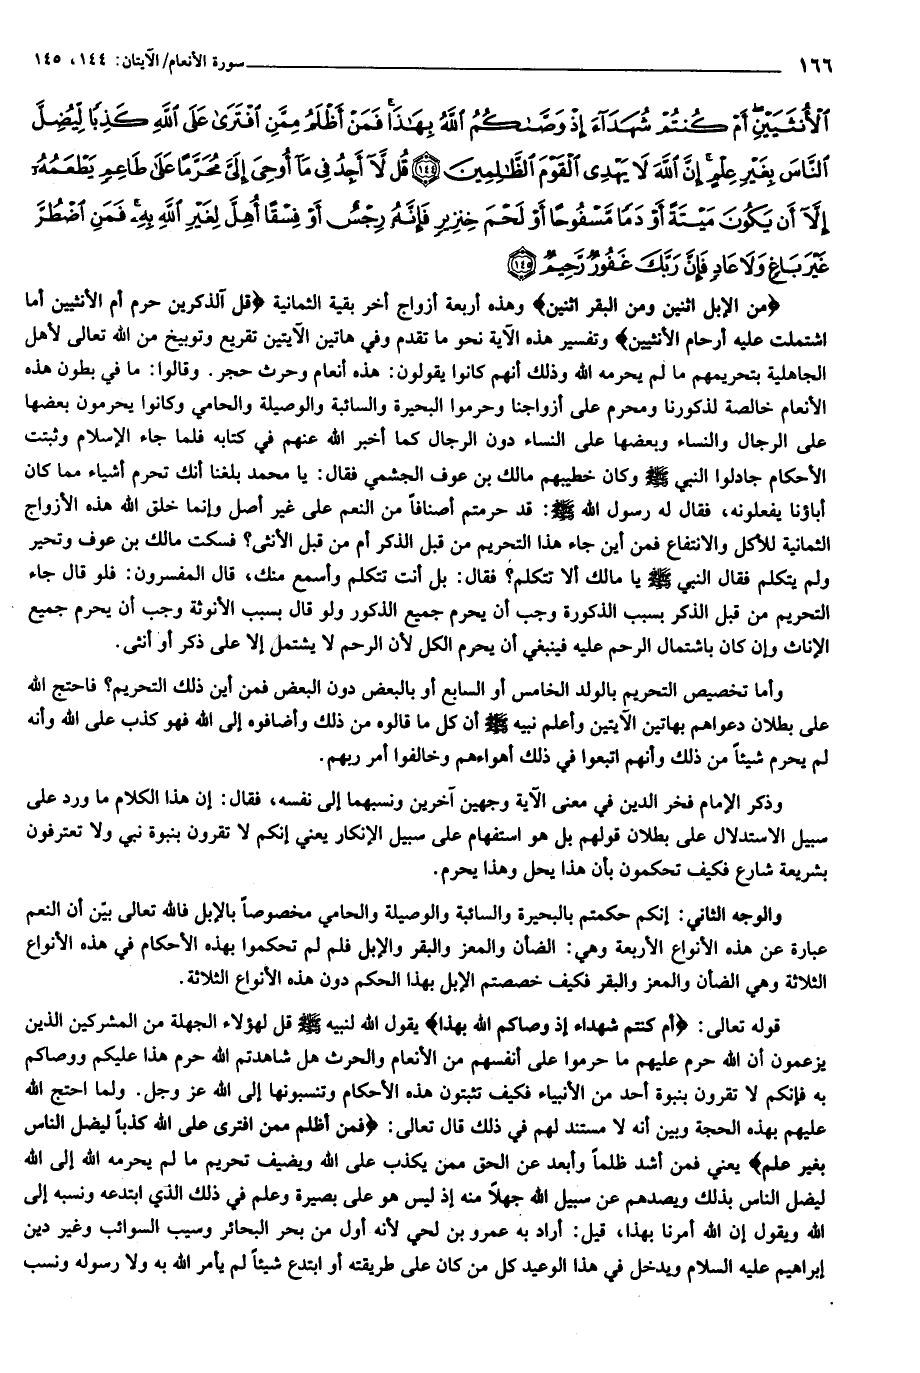 ١٦٦ سورة الأنعام/ الآيتان: ١٤٤، ١٤٥
ٱلْأُنثَيَيْنِۖ أَمْ كُنتُمْ شُهَدَآءَ إِذْ وَصَّىٰكُمُ ٱللَّهُ بِهَٰذَاۚ فَمَنْ أَظْلَمُ مِمَّنِ ٱفْتَرَىٰ عَلَى ٱللَّهِ كَذِبًا لِّيُضِلَّ
ٱلنَّاسَ بِغَيْرِ عِلْمٍۗ إِنَّ ٱللَّهَ لَا يَهْدِى ٱلْقَوْمَ ٱلظَّٰلِمِينَ ١٤٤ قُل لَّآ أَجِدُ فِى مَآ أُوحِىَ إِلَىَّ مُحَرَّمًا عَلَىٰ طَاعِمٍ يَطْعَمُهُۥٓ
إِلَّآ أَن يَكُونَ مَيْتَةً أَوْ دَمًا مَّسْفُوحًا أَوْ لَحْمَ خِنزِيرٍ فَإِنَّهُۥ رِجْسٌ أَوْ فِسْقًا أُهِلَّ لِغَيْرِ ٱللَّهِ بِهِۦۚ فَمَنِ ٱضْطُرَّ
غَيْرَ بَاغٍ وَلَا عَادٍ فَإِنَّ رَبَّكَ غَفُورٌ رَّحِيمٌ ١٤٥
﴿من الإبل اثنين ومن البقر اثنين﴾ وهذه أربعة أزواج أخر بقية الثمانية ﴿قل آلذكرين حرم أم الأنثيين أما
اشتملت عليه أرحام الأنثيين﴾ وتفسير هذه الآية نحو ما تقدم وفي هاتين الآيتين تقريع وتوبيخ من الله تعالى لأهل
الجاهلية بتحريمهم ما لم يحرمه الله وذلك أنهم كانوا يقولون: هذه أنعام وحرث حجر. وقالوا: ما في بطون هذه
الأنعام خالصة لذكورنا ومحرم على أزواجنا وحرموا البحيرة والسائبة والوصيلة والحامي وكانوا يحرمون بعضها
على الرجال والنساء وبعضها على النساء دون الرجال كما أخبر الله عنهم في كتابه فلما جاء الإسلام وثبتت
الأحكام جادلوا النبي ﷺ وكان خطيبهم مالك بن عوف الجشمي فقال: يا محمد بلغنا أنك تحرم أشياء مما كان
أباؤنا يفعلونه، فقال له رسول الله ﷺ: قد حرمتم أصنافاً من النعم على غير أصل وإنما خلق الله هذه الأزواج
الثمانية للأكل والانتفاع فمن أين جاء هذا التحريم من قبل الذكر أم من قبل الأنثى؟ فسكت مالك بن عوف وتحير
ولم يتكلم فقال النبي ﷺ يا مالك ألا تتكلم؟ فقال: بل أنت تتكلم وأسمع منك، قال المفسرون: فلو قال جاء
التحريم من قبل الذكر بسبب الذكورة وجب أن يحرم جميع الذكور ولو قال بسبب الأنوثة وجب أن يحرم جميع
الإناث وإن كان باشتمال الرحم عليه فينبغي أن يحرم الكل لأن الرحم لا يشتمل إلا على ذكر أو أنثى.
وأما تخصيص التحريم بالولد الخامس أو السابع أو بالبعض دون البعض فمن أين ذلك التحريم؟ فاحتج الله
على بطلان دعواهم بهاتين الآيتين وأعلم نبيه ﷺ أن كل ما قالوه من ذلك وأضافوه إلى الله فهو كذب على الله وأنه
لم يحرم شيئاً من ذلك وأنهم اتبعوا في ذلك أهواءهم وخالفوا أمر ربهم.
وذكر الإمام فخر الدين في معنى الآية وجهين آخرين ونسبهما إلى نفسه، فقال: إن هذا الكلام ما ورد على
سبيل الاستدلال على بطلان قولهم بل هو استفهام على سبيل الإنكار يعني إنكم لا تقرون بنبوة نبي ولا تعترفون
بشريعة شارع فكيف تحكمون بأن هذا يحل وهذا يحرم.
والوجه الثاني: إنكم حكمتم بالبحيرة والسائبة والوصيلة والحامي مخصوصاً بالإبل فالله تعالى بيّن أن النعم
عبارة عن هذه الأنواع الأربعة وهي: الضأن والمعز والبقر والإبل فلم لم تحكموا بهذه الأحكام في هذه الأنواع
الثلاثة وهي الضأن والمعز والبقر فكيف خصصتم الإبل بهذا الحكم دون هذه الأنواع الثلاثة.
قوله تعالى: ﴿أم كنتم شهداء إذ وصاكم الله بهذا﴾ يقول الله لنبيه ﷺ قل لهؤلاء الجهلة من المشركين الذين
يزعمون أن الله حرم عليهم ما حرموا على أنفسهم من الأنعام والحرث هل شاهدتم الله حرم هذا عليكم ووصاكم
به فإنكم لا تقرون بنبوة أحد من الأنبياء فكيف تثبتون هذه الأحكام وتنسبونها إلى الله عز وجل. ولما احتج الله
عليهم بهذه الحجة وبين أنه لا مستند لهم في ذلك قال تعالى: ﴿فمن أظلم ممن افترى على الله كذباً ليضل الناس
بغير علم﴾ يعني فمن أشد ظلماً وأبعد عن الحق ممن يكذب على الله ويضيف تحريم ما لم يحرمه الله إلى الله
ليضل الناس بذلك ويصدهم عن سبيل الله جهلاً منه إذ ليس هو على بصيرة وعلم في ذلك الذي ابتدعه ونسبه إلى
الله ويقول إن الله أمرنا بهذا، قيل: أراد به عمرو بن لحي لأنه أول من بحر البحائر وسيب السوائب وغير دين
إبراهيم عليه السلام ويدخل في هذا الوعيد كل من كان على طريقته أو ابتدع شيئاً لم يأمر الله به ولا رسوله ونسب